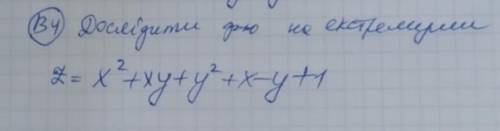 В4 Дослідити ф-ю на екстремуми
z = x² + xy + y² + x - y + 1